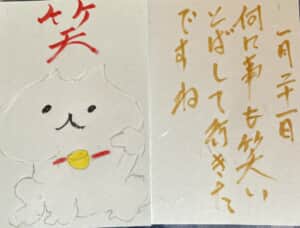 笑
一月二十一日
何に事も笑い
とばして行きたい
ですね